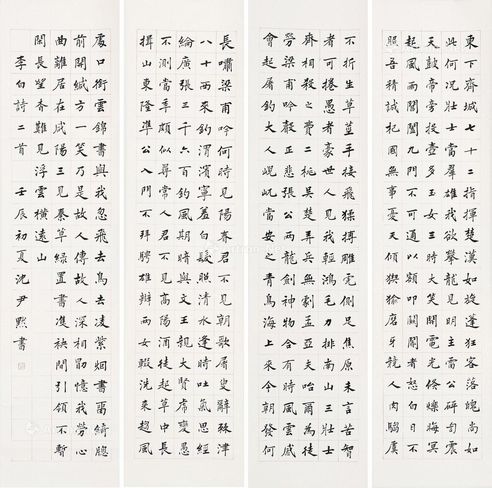 東下齊城七十二指揮楚漢如旋蓬狂客落魄尚如
此何況壯士當群雄我欲攀龍見明主雷公砰訇震
天鼓帝旁投壺多玉女三時大笑開電光倏爍晦冥
起風雨閶闔九門不可通以額叩關閽者怒白日不
照吾精誠杞國無事憂天傾猰貐磨牙競人肉騶虞
不折生草莖手接飛猱搏雕虎側足焦原未言苦智
者可捲愚者豪世人見我輕鴻毛力排南山三壯士
齊相殺之費二桃吳楚弄兵無劇孟亞夫咍爾為徒
勞梁甫吟聲正悲張公兩龍劍神物合有時風雲感
會起屠釣大人屼當安之青鳥海上來今朝發何
長嘯梁甫吟何時見陽春君不見朝歌屠叟辭棘津
八十西來釣渭濱寧羞白髮照清水逢時吐氣思經
綸廣張三千六百鈞風期暗與文王親大賢虎變愚
不測當年頗似尋常人君不見高陽酒徒起草中長
揖山東隆準公入門不拜騁雄辯兩女輟洗來趨風
處口銜雲錦書與我忽飛去鳥去凌紫烟書留綺窗
前開緘方一笑乃是故人傳故人深相勗憶我勞心
曲離居在咸陽三見秦草綠置書雙袂間引領不暫
閑長望杳難見浮雲橫遠山
李白詩二首 壬辰初夏沈尹默書